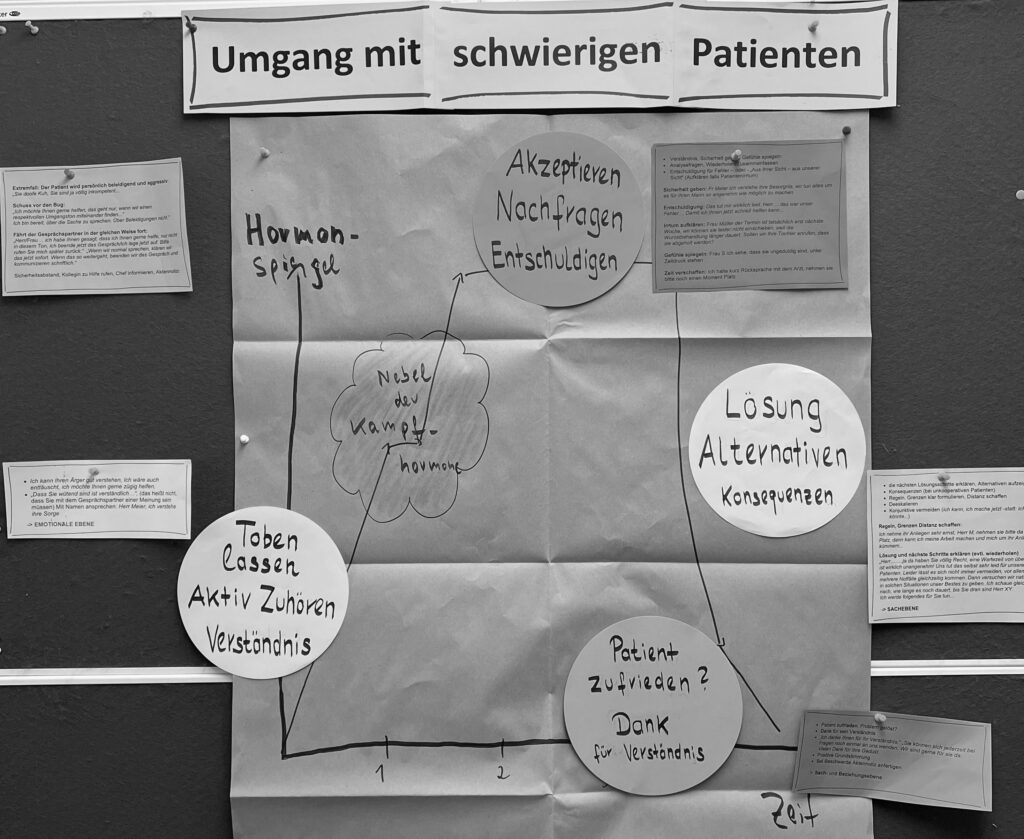 Umgang mit schwierigen Patienten
Extremfall: Der Patient wird persönlich beleidigend und aggressiv:
„Sie doofe Kuh, Sie sind ja völlig inkompetent...“
Schuss vor den Bug:
„Ich möchte Ihnen gerne helfen, das geht nur, wenn wir einen
respektvollen Umgangston miteinander finden...“
Ich bin bereit, über die Sache zu sprechen. Über Beleidigungen nicht.“
Fährt der Gesprächspartner in der gleichen Weise fort:
„Herr/Frau ... ich habe Ihnen gesagt, dass ich Ihnen gerne helfe, nur nicht
in diesem Ton, ich beende jetzt das Gespräch/ich lege jetzt auf. Bitte
rufen Sie mich später zurück.“ „Wenn wir normal sprechen, klären wir
das jetzt sofort. Wenn das so weitergeht, beenden wir das Gespräch und
kommunizieren schriftlich.“
Sicherheitsabstand, Kollegin zu Hilfe rufen, Chef informieren, Aktennotiz
Hormon-
spiegel
Akzeptieren
Nachfragen
Entschuldigen
Verständnis, Sicherheit geben, Gefühle spiegeln
Analysefragen, Wiederholen, zusammenfassen
Entschuldigung für Fehler – oder - „Aus Ihrer Sicht – aus unserer
Sicht“ (Aufklären falls Patientenirrtum)
Sicherheit geben: Fr Meier ich verstehe Ihre Besorgnis, wir tun alles um
es für Ihren Mann so angenehm wie möglich zu machen
Entschuldigung: Das tut mir wirklich leid, Herr ... das war unser
Fehler ... Damit ich Ihnen jetzt schnell helfen kann...
Irrtum aufklären: Frau Müller der Termin ist tatsächlich erst nächste
Woche, wir können sie leider nicht einschieben, weil die
Wundbehandlung länger dauert. Sollen wir Ihre Tochter anrufen, dass
sie abgeholt werden?
Gefühle spiegeln: Frau S ich sehe, dass sie ungeduldig sind, unter
Zeitdruck stehen
Zeit verschaffen: Ich halte kurz Rücksprache mit dem Arzt, nehmen sie
bitte noch einen Moment Platz.
Nebel
der
Kampf-
hormone
Lösung
Alternativen
Konsequenzen
Ich kann Ihren Ärger gut verstehen, ich wäre auch
enttäuscht, ich möchte Ihnen gerne zügig helfen.
„Dass Sie wütend sind ist verständlich...“. (das heißt nicht,
dass Sie mit dem Gesprächspartner einer Meinung sein
müssen) Mit Namen ansprechen: Herr Meier, ich verstehe
ihre Sorge
-> EMOTIONALE EBENE
die nächsten Lösungsschritte erklären, Alternativen aufzeigen
Konsequenzen (bei unkooperativen Patienten)
Regeln, Grenzen klar formulieren, Distanz schaffen
Deeskalieren
Konjunktive vermeiden (ich kann, ich mache jetzt -statt: ich
könnte...)
Regeln, Grenzen Distanz schaffen:
Ich nehme ihr Anliegen sehr ernst, Herr M, nehmen sie bitte
Platz, dann kann ich meine Arbeit machen und mich um ihr
kümmern..
Lösung und nächste Schritte erklären (evtl. wiederholen)
„Herr......, Ja da haben Sie völlig Recht, eine Wartezeit von
ist wirklich unangenehm! Uns tut das selbst sehr leid für
Patienten. Leider lässt es sich nicht immer vermeiden, vor
mehrere Notfälle gleichzeitig kommen. Dann versuchen wir
in solchen Situationen unser Bestes zu geben. Ich schaue
nach, wie lange es noch dauert, bis Sie dran sind Herr XY.
Ich werde folgendes für Sie tun...
-> SACHEBENE
Toben
lassen
Aktiv Zuhören
Verständnis
Patient
zufrieden?
Dank
für Verständnis
Patient zufrieden, Problem gelöst?
Dank für sein Verständnis
„Ich danke Ihnen für Ihr Verständnis.“ „Sie können sich jederzeit bei
Fragen noch einmal an uns wenden. Wir sind gerne für sie da.
Vielen Dank für Ihre Geduld
Positive Grundstimmung
Bei Beschwerde Aktennotiz anfertigen
> Sach- und Beziehungsebene
1
2
Zeit